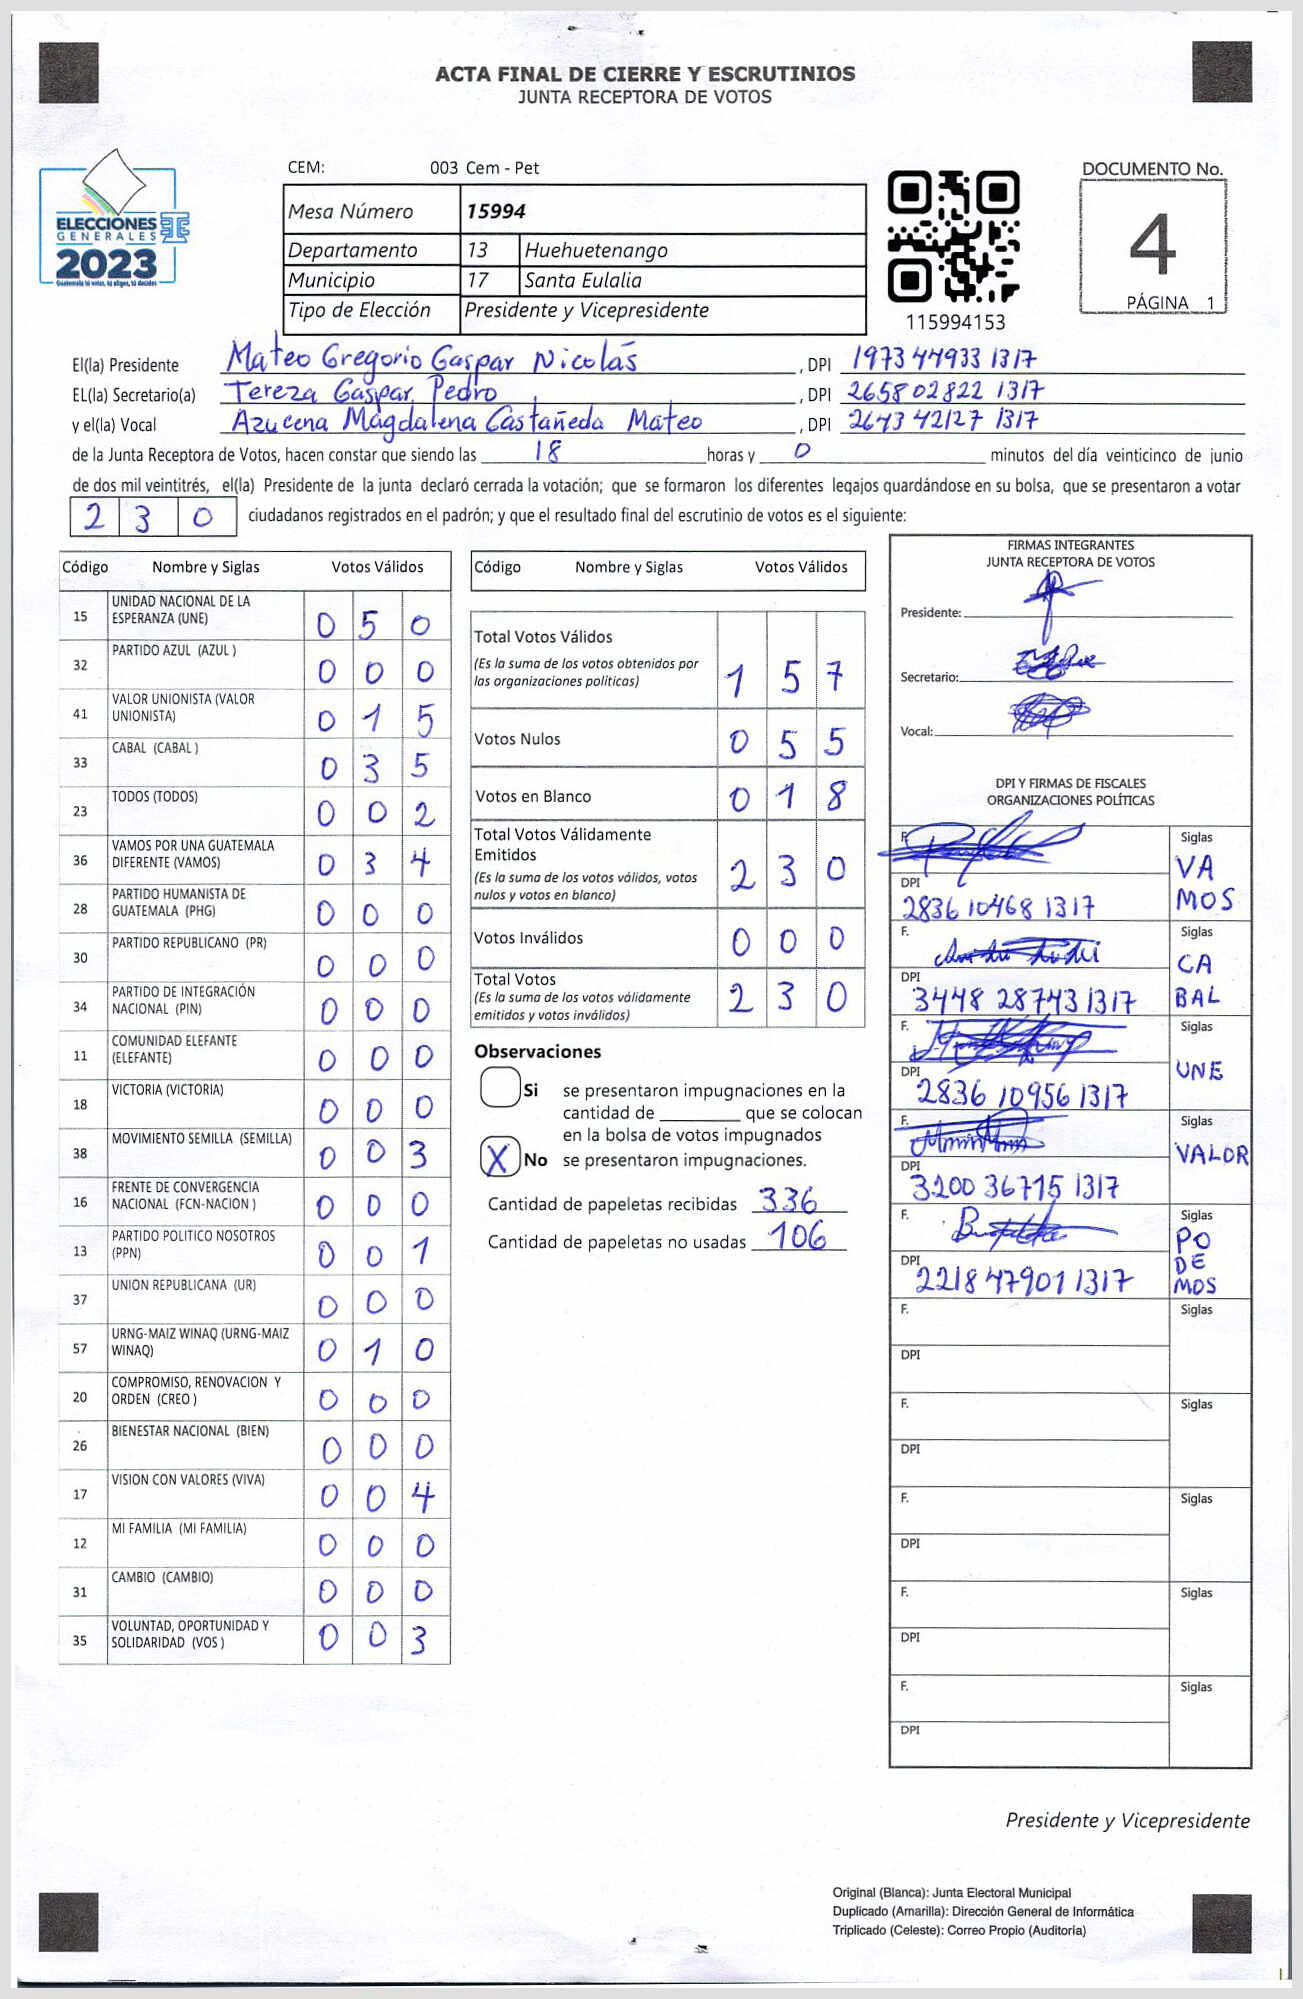 ACTA FINAL DE CIERRE Y ESCRUTINIOS
JUNTA RECEPTORA DE VOTOS
ELECCIONES
GENERALES
2023
Guatemala tú votas, tú eliges, tú decides
CEM: 003 Cem - Pet
Mesa Número 15994
Departamento 13 Huehuetenango
Municipio 17 Santa Eulalia
Tipo de Elección Presidente y Vicepresidente
115994153
DOCUMENTO No.
4
PÁGINA 1
El(la) Presidente Mateo Gregorio Gaspar Nicolás , DPI 1973 44933 1317
EL(la) Secretario(a) Tereza Gaspar Pedro , DPI 2658 02822 1317
y el(la) Vocal Azucena Magdalena Castañeda Mateo , DPI 2643 42127 1317
de la Junta Receptora de Votos, hacen constar que siendo las 18 horas y 0 minutos del día veinticinco de junio
de dos mil veintitrés, el(la) Presidente de la junta declaró cerrada la votación; que se formaron los diferentes legajos guardándose en su bolsa, que se presentaron a votar
2 3 0 ciudadanos registrados en el padrón; y que el resultado final del escrutinio de votos es el siguiente:
Código Nombre y Siglas Votos Válidos
15 UNIDAD NACIONAL DE LA
ESPERANZA (UNE) 0 5 0
32 PARTIDO AZUL (AZUL ) 0 0 0
41 VALOR UNIONISTA (VALOR
UNIONISTA) 0 1 5
33 CABAL (CABAL ) 0 3 5
23 TODOS (TODOS) 0 0 2
36 VAMOS POR UNA GUATEMALA
DIFERENTE (VAMOS) 0 3 4
28 PARTIDO HUMANISTA DE
GUATEMALA (PHG) 0 0 0
30 PARTIDO REPUBLICANO (PR) 0 0 0
34 PARTIDO DE INTEGRACIÓN
NACIONAL (PIN) 0 0 0
11 COMUNIDAD ELEFANTE
(ELEFANTE) 0 0 0
18 VICTORIA (VICTORIA) 0 0 0
38 MOVIMIENTO SEMILLA (SEMILLA) 0 0 3
16 FRENTE DE CONVERGENCIA
NACIONAL (FCN-NACION ) 0 0 0
13 PARTIDO POLITICO NOSOTROS
(PPN) 0 0 1
37 UNION REPUBLICANA (UR) 0 0 0
57 URNG-MAIZ WINAQ (URNG-MAIZ
WINAQ) 0 1 0
20 COMPROMISO, RENOVACION Y
ORDEN (CREO ) 0 0 0
26 BIENESTAR NACIONAL (BIEN) 0 0 0
17 VISION CON VALORES (VIVA) 0 0 4
12 MI FAMILIA (MI FAMILIA) 0 0 0
31 CAMBIO (CAMBIO) 0 0 0
35 VOLUNTAD, OPORTUNIDAD Y
SOLIDARIDAD (VOS ) 0 0 3
Código Nombre y Siglas Votos Válidos
Total Votos Válidos
(Es la suma de los votos obtenidos por
las organizaciones políticas) 1 5 7
Votos Nulos 0 5 5
Votos en Blanco 0 1 8
Total Votos Válidamente
Emitidos
(Es la suma de los votos válidos, votos
nulos y votos en blanco) 2 3 0
Votos Inválidos 0 0 0
Total Votos
(Es la suma de los votos válidamente
emitidos y votos inválidos) 2 3 0
Observaciones
Si se presentaron impugnaciones en la
cantidad de ________ que se colocan
en la bolsa de votos impugnados
X No se presentaron impugnaciones.
Cantidad de papeletas recibidas 336
Cantidad de papeletas no usadas 106
FIRMAS INTEGRANTES
JUNTA RECEPTORA DE VOTOS
Presidente:
Secretario:
Vocal:
DPI Y FIRMAS DE FISCALES
ORGANIZACIONES POLÍTICAS
F. Siglas
VA
MOS
DPI
2836 10468 1317
F. Siglas
CA
BAL
DPI
3448 28743 1317
F. Siglas
UNE
DPI
2836 10956 1317
F.
VALOR
DPI
3200 36715 1317
F. Siglas
PO
DE
MOS
DPI
2218 47901 1317
F. Siglas
DPI
F. Siglas
DPI
F. Siglas
DPI
F. Siglas
DPI
F. Siglas
DPI
Presidente y Vicepresidente
Original (Blanca): Junta Electoral Municipal
Duplicado (Amarilla): Dirección General de Informática
Triplicado (Celeste): Correo Propio (Auditoría)